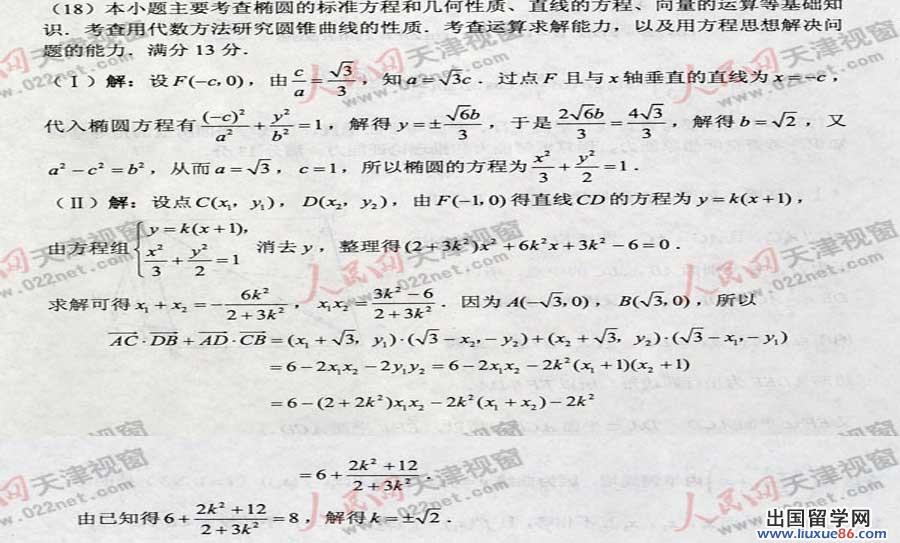 (18) 本小题主要考查椭圆的标准方程和几何性质、直线的方程、向量的运算等基础知
识. 考查用代数方法研究圆锥曲线的性质. 考查运算求解能力, 以及用方程思想解决问
题的能力. 满分 13 分.
(Ⅰ) 解: 设 F(−c, 0), 由 c/a = √3/3, 知 a = √3c. 过点 F 且与 x 轴垂直的直线为 x = −c,
代入椭圆方程有 (−c)²/a² + y²/b² = 1, 解得 y = ± √6b/3, 于是 2√6b/3 = 4√3/3, 解得 b = √2, 又
a² − c² = b², 从而 a = √3, c = 1, 所以椭圆的方程为 x²/3 + y²/2 = 1.
(Ⅱ) 解: 设点 C(x₁, y₁), D(x₂, y₂), 由 F(−1, 0) 得直线 CD 的方程为 y = k(x + 1),
由方程组 { y = k(x + 1), x²/3 + y²/2 = 1 消去 y, 整理得 (2 + 3k²)x² + 6k²x + 3k² − 6 = 0.
求解可得 x₁ + x₂ = − 6k²/(2 + 3k²), x₁x₂ = (3k² − 6)/(2 + 3k²). 因为 A(−√3, 0), B(√3, 0), 所以
AC · DB + AD · CB = (x₁ + √3, y₁) · (√3 − x₂, − y₂) + (x₂ + √3, y₂) · (√3 − x₁, − y₁)
= 6 − 2x₁x₂ − 2y₁y₂ = 6 − 2x₁x₂ − 2k²(x₁ + 1)(x₂ + 1)
= 6 − (2 + 2k²)x₁x₂ − 2k²(x₁ + x₂) − 2k²
= 6 + (2k² + 12)/(2 + 3k²).
由已知得 6 + (2k² + 12)/(2 + 3k²) = 8, 解得 k = ±√2.
人民网 天津视窗
www.022net.com
出国留学网
www.liuxue86.com